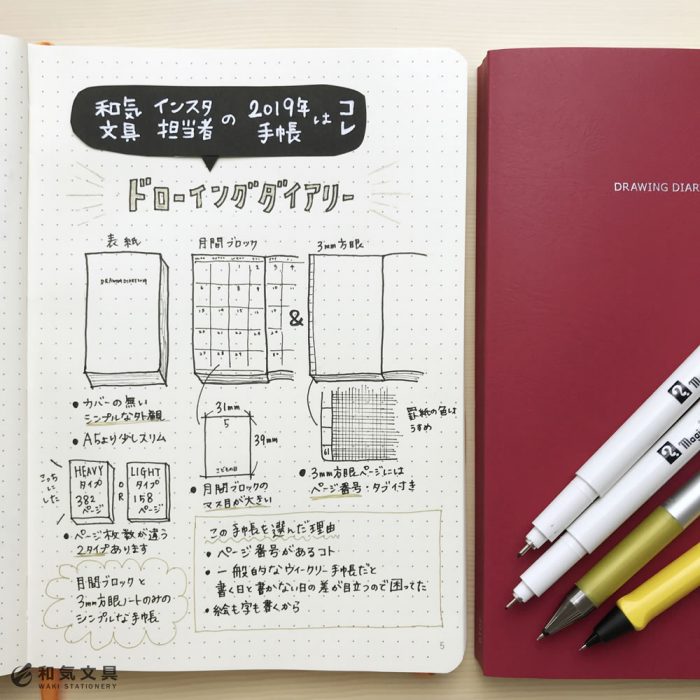 和気文具 インスタ担当者 の 2019年手帳 は コレ
ドローイングダイアリー
表紙
DRAWING DIARY 2019
月間ブロック
&
3mm方眼
● カバーの無い
シンプルな外観
● A5より少しスリム
こっちにした
HEAVY
タイプ
382
ページ
OR
LIGHT
タイプ
158
ページ
● ページ枚数が違う
2タイプあります
月間ブロックと
3mm方眼ノートのみの
シンプルな手帳
31mm
39mm
5
こどもの日
● 月間ブロックの
マス目が大きい
61
罫紙の色は
うすめ
● 3mm方眼ページには
ページ番号・タブイ付き
この手帳を選んだ理由
● ページ番号があるコト
● 一般的なウィークリー手帳だと
書く日と書かない日の差が目立つので困ってた
● 絵も字も書くから
5
和気文具
WAKI STATIONERY
DRAWING DIAR